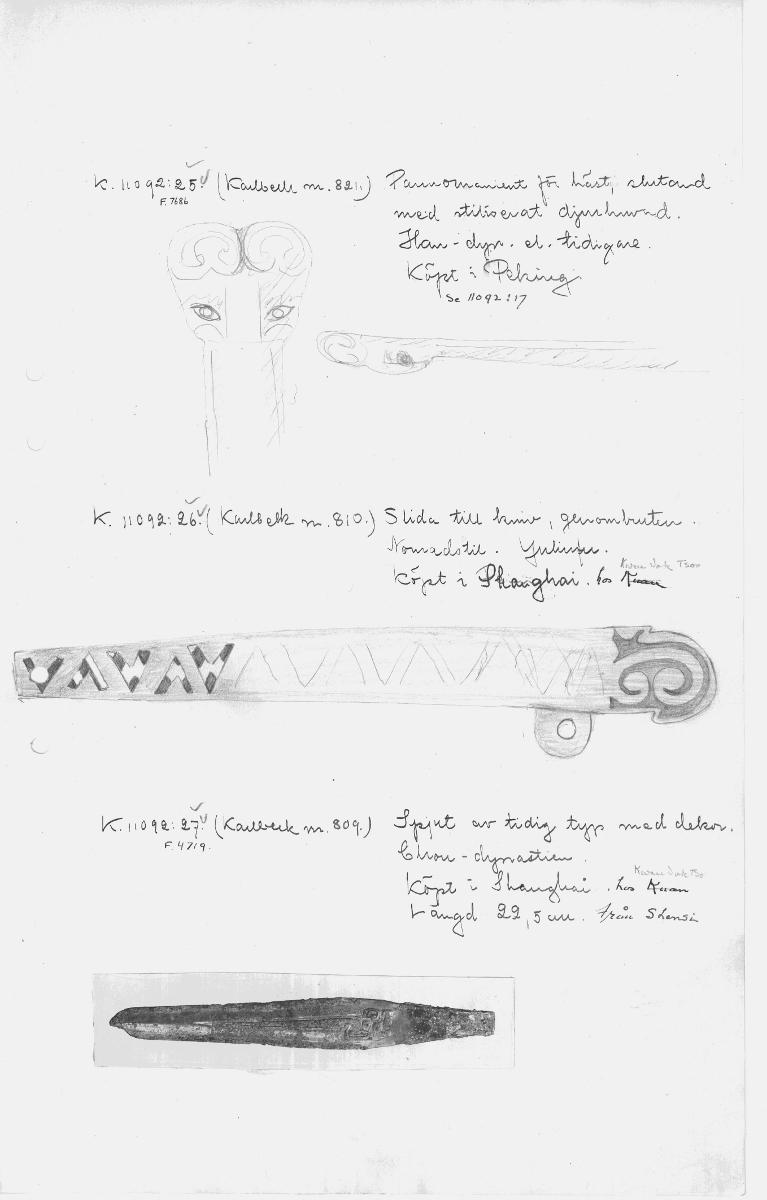 K. 11092:25. (Karlbeck nr. 821.) Pannornament för häst, slutand
F. 7686
med stiliserat djurhuvud.
Han-dyn. el. tidigare.
Köpt i Peking
Se 11092:17
K. 11092:26. (Karlbeck nr. 810.) Slida till kniv, genombruten.
Nomadstil.
Köpt i Shanghai. hos Kuan
Kwan Tsoo
K. 11092:27. (Karlbeck nr. 809.) Spjut av tidig typ med dekor.
F. 4719.
Chou-dynastien.
Köpt i Shanghai. hos Kuan
Kwan Tso
Längd 22,5 cm. från Shensi